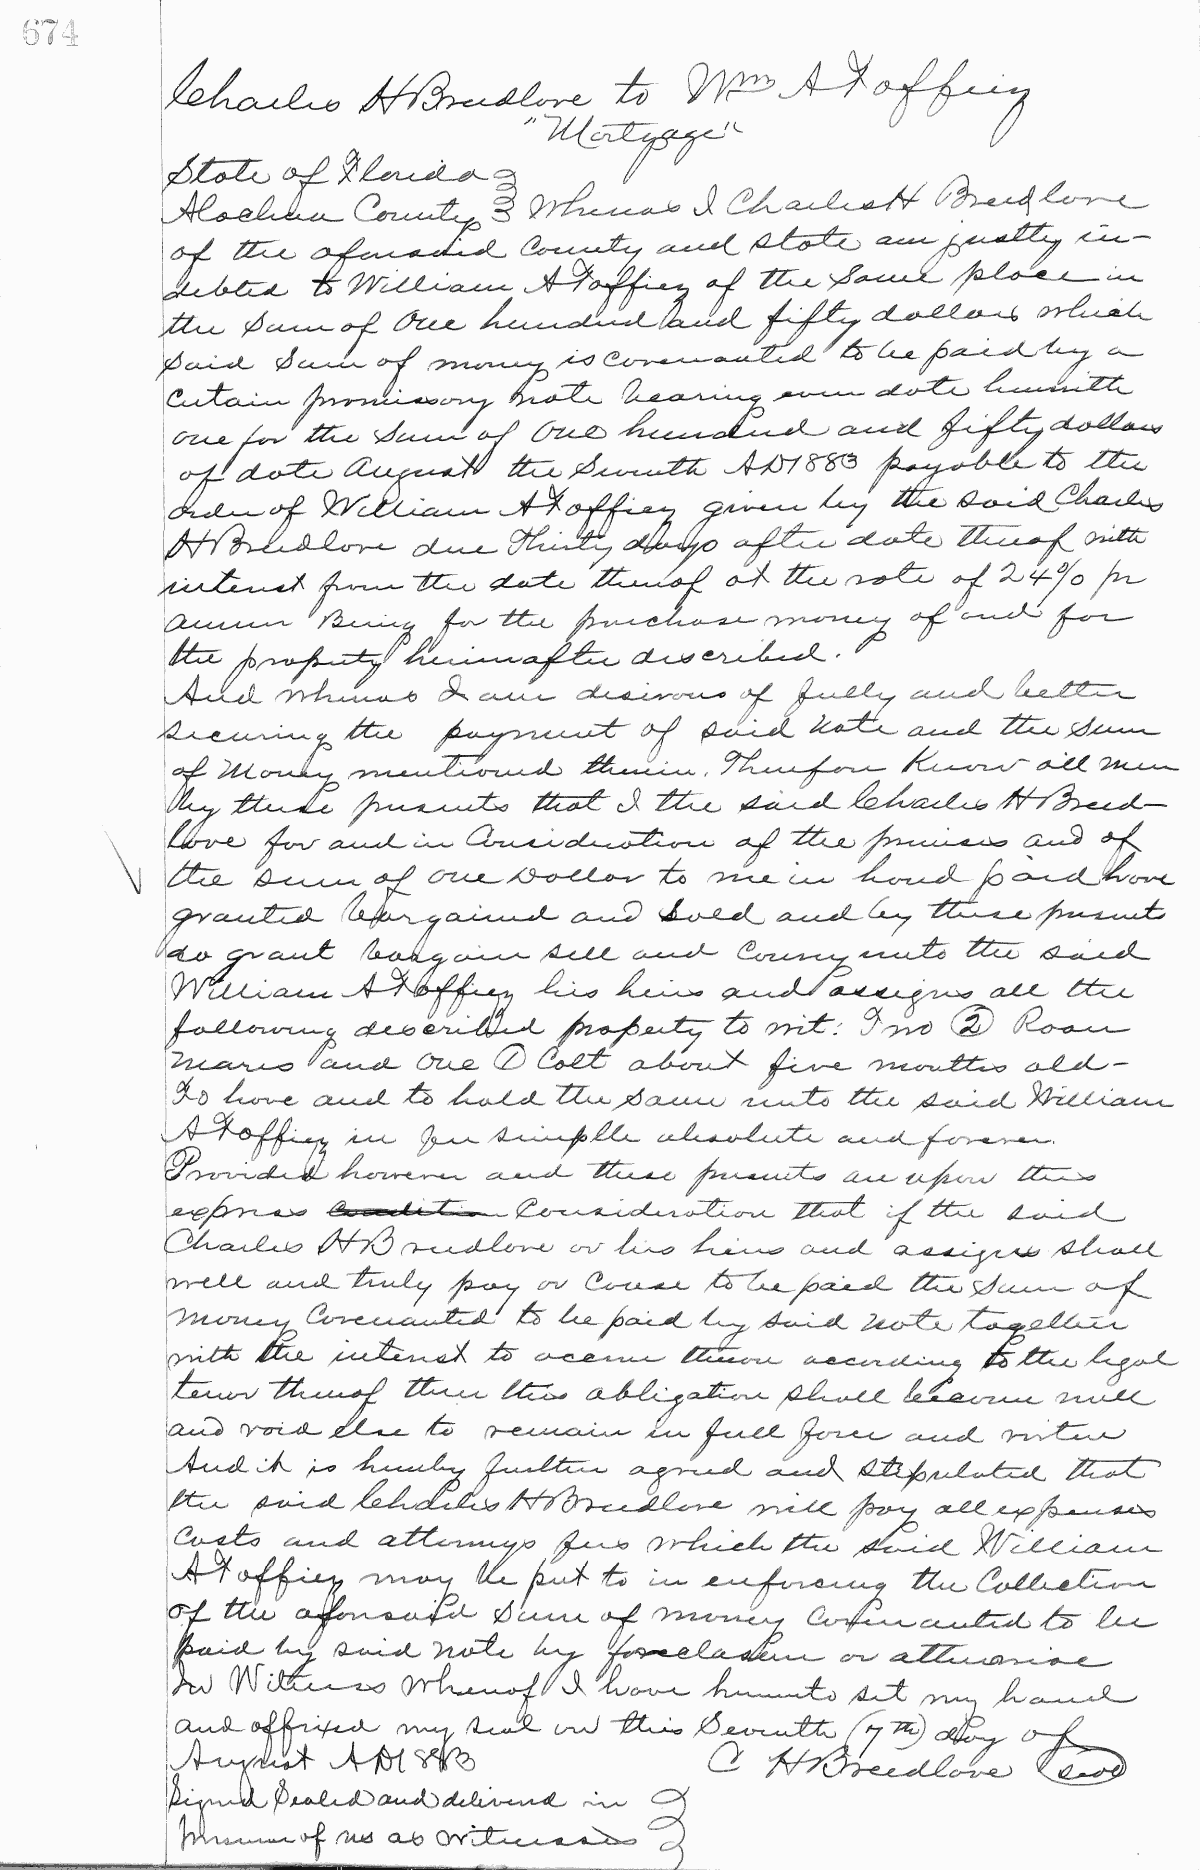 674
Charles H Breedlove to Wm A Foffiey
"Mortgage"
State of Florida
Alachua County Whereas I Charles H Breedlove
of the aforesaid County and State am justly in-
debted to William A Foffiey of the Same place in
the Sum of One hundred and fifty dollars which
said Sum of money is covenanted to be paid by a
certain promissory note bearing even date herewith
one for the Sum of One hundred and fifty dollars
of date August the Seventh AD 1883 payable to the
order of William A Foffiey given by the said Charles
H Breedlove due Thirty days after date thereof with
interest from the date thereof at the rate of 24% pr
annum Being for the purchase money of and for
the property hereinafter described.
And Whereas I am desirous of fully and better
securing the payment of said note and the Sum
of Money mentioned therein. Therefore Know all men
by these presents that I the said Charles H Breed-
love for and in Consideration of the premises and of
the sum of one Dollar to me in hand paid have
granted bargained and Sold and by these presents
do grant bargain sell and convey unto the said
William A Foffiey his heirs and assigns all the
following described property to wit: Two (2) Roan
Mares and One (1) Colt about five months old-
To have and to hold the same unto the said William
A Foffiey in fee simplle absolute and forever.
Provided however and these presents are upon this
express condition Consideration that if the said
Charles H Breedlove or his heirs and assigns shall
well and truly pay or cause to be paid the Sum of
money Covenanted to be paid by said note together
with the interest to accrue thereon according to the legal
tenor thereof then this obligation shall become null
and void else to remain in full force and virtue
And it is hereby further agreed and stipulated that
the said Charles H Breedlove will pay all expenses
costs and attorneys fees which the said William
A Foffiey may be put to in enforcing the Collection
of the aforesaid Sum of money Covenanted to be
paid by said note by foreclosure or otherwise
In Witness Whereof I have hereunto set my hand
and affixed my seal on this Seventh (7th) day of
August AD 1883 C H Breedlove seal
Signed Sealed and delivered in
presence of us as witnesses